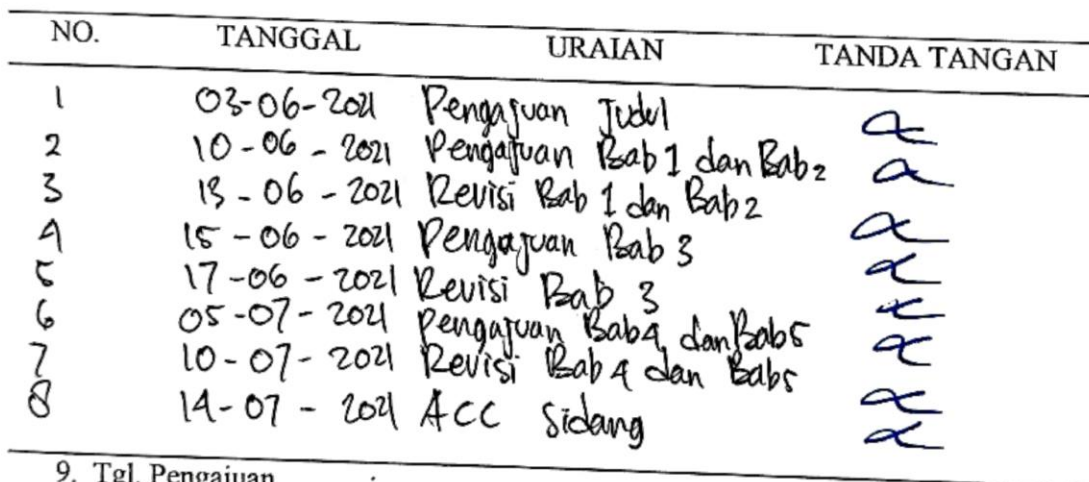 NO. TANGGAL URAIAN TANDA TANGAN
1 03-06-2021 Pengajuan Judul
2 10-06-2021 Pengajuan Bab 1 dan Bab 2
3 13-06-2021 Revisi Bab 1 dan Bab 2
4 15-06-2021 Pengajuan Bab 3
5 17-06-2021 Revisi Bab 3
6 05-07-2021 Pengajuan Bab 4 dan Bab 5
7 10-07-2021 Revisi Bab 4 dan Bab 5
8 14-07-2021 ACC Sidang
9. Tgl. Pengajuan